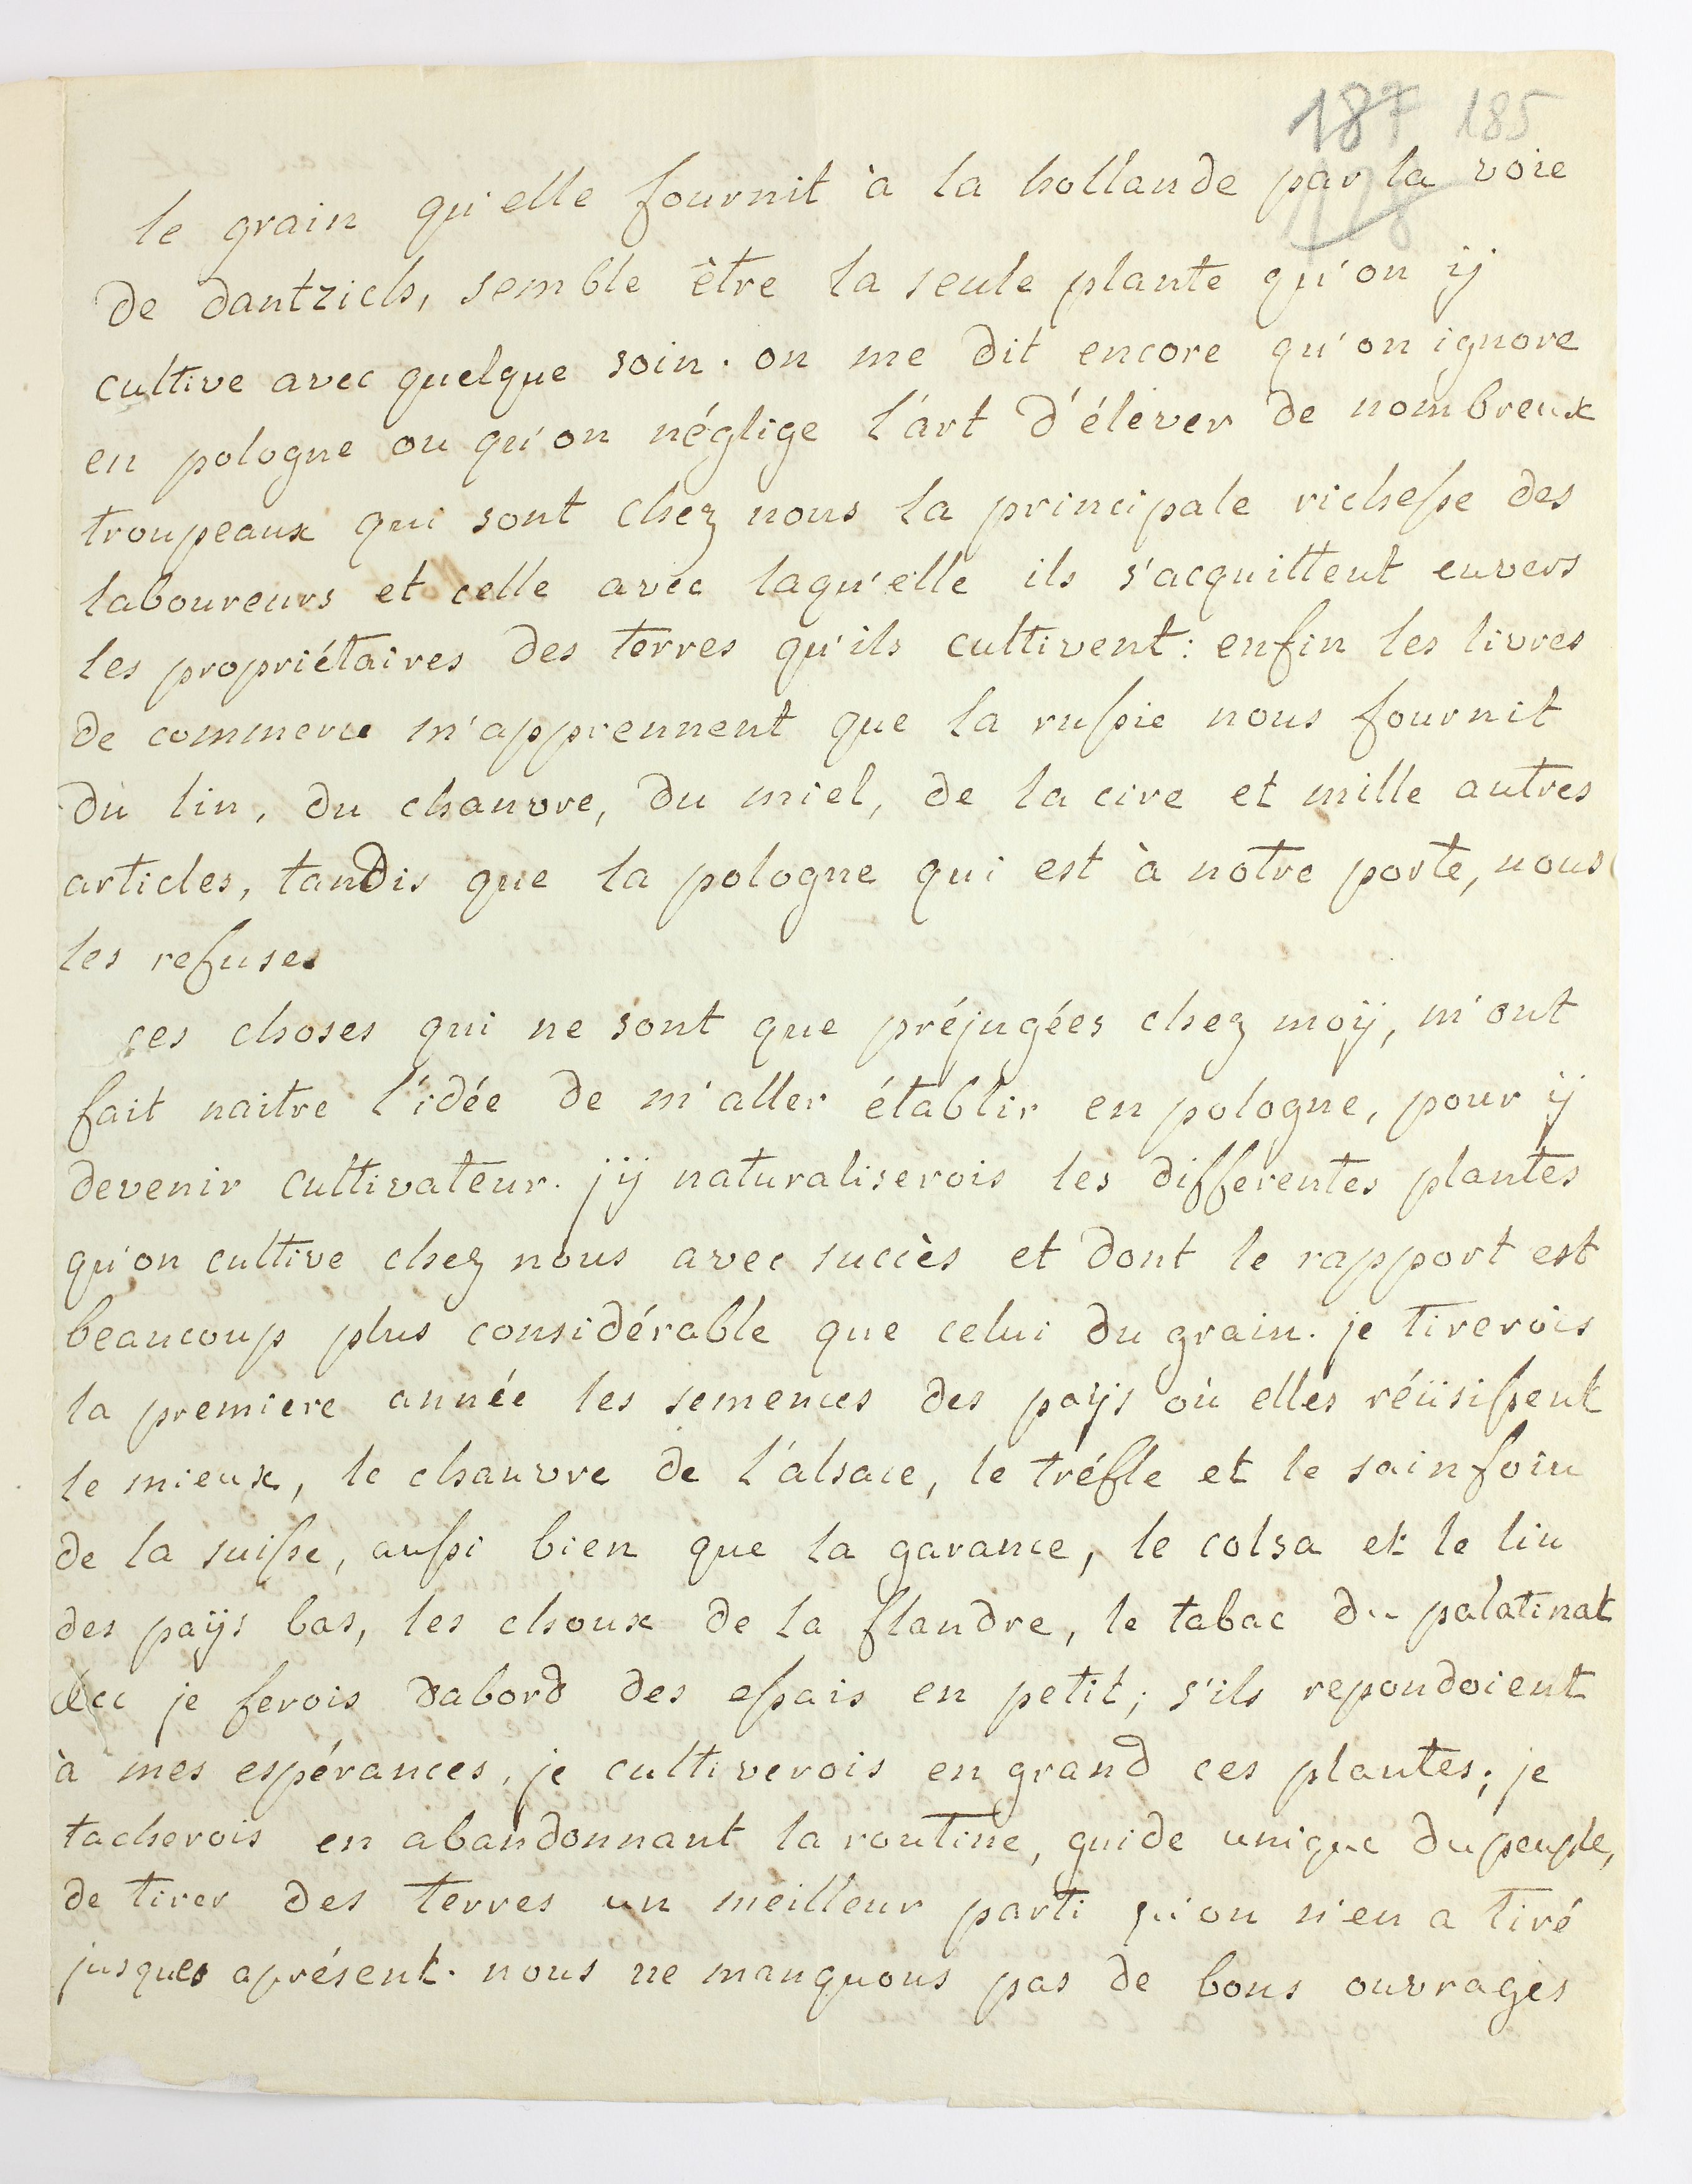 187 185
178
le grain qu'elle fournit à la hollande par la voie
de dantzich, semble être la seule plante qu'on ÿ
cultive avec quelque soin. on me dit encore qu'on ignore
en pologne ou qu'on néglige l'art d'élever de nombreux
troupeaux qui sont chez nous la principale richeſse des
laboureurs et celle avec laqu'elle ils s'acquittent envers
les propriétaires des terres qu'ils cultivent: enfin les livres
de commerce m'apprennent que la ruſsie nous fournit
du lin, du chanvre, du miel, de la cire et mille autres
articles, tandis que la pologne qui est à notre porte, nous
les refuse.
ces choses qui ne sont que préjugées chez moÿ, m'ont
fait naitre l'idée de m'aller établir en pologne, pour ÿ
devenir cultivateur. j'ÿ naturaliserois les differentes plantes
qu'on cultive chez nous avec succès et dont le rapport est
beaucoup plus considérable que celui du grain. je tirerois
la premiere année les semences des paÿs où elles réüsiſsent
le mieux, le chanvre de l'alsace, le tréfle et le sainfoin
de la suiſse, auſsi bien que la garance, le colsa et le lin
des paÿs bas, les choux de la flandre, le tabac du palatinat
&cc je ferois dabord des eſsais en petit; s'ils repondoient
à mes espérances, je cultiverois en grand ces plantes; je
tacherois en abandonnant la routine, guide unique du peuple,
de tirer des terres un meilleur parti qu'on n'en a tiré
jusques aprésent. nous ne manquons pas de bons ouvrages